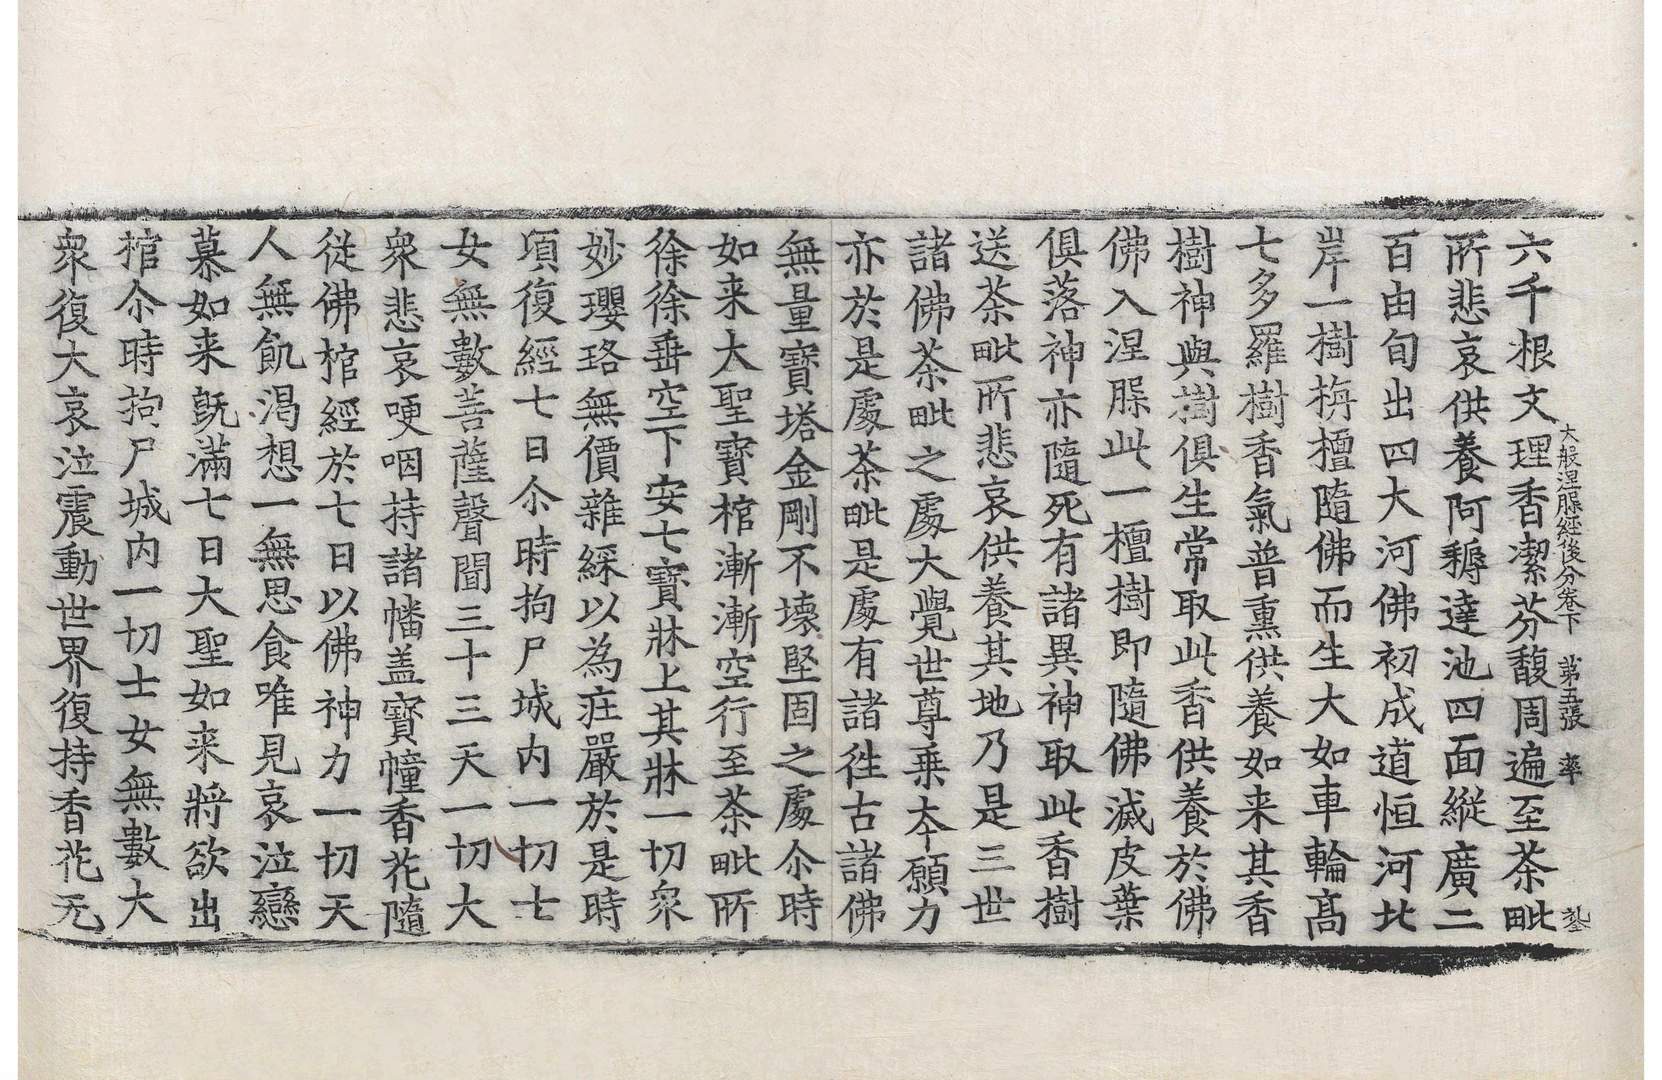 大般涅槃經後分卷下 第五張 率
六千根文理香潔芬馥周遍至茶毗
所悲哀供養阿耨達池四面縱廣二
百由旬出四大河佛初成道恒河北
岸一樹栴檀隨佛而生大如車輪髙
七多羅樹香氣普熏供養如来其香
樹神與樹俱生常取此香供養於佛
佛入涅槃此一檀樹即隨佛滅皮葉
俱落神亦隨死有諸異神取此香樹
送茶毗所悲哀供養其地乃是三世
諸佛茶毗之處大覺世尊乗夲願力
亦於是處茶毗是處有諸徃古諸佛
無量寶塔金剛不壊堅固之處尒時
如来大聖寶棺漸漸空行至茶毗所
徐徐垂空下安七寶牀上其牀一切衆
妙瓔珞無價雜綵以為莊嚴於是時
項復經七日尒時拘尸城内一切士
女無數菩薩聲聞三十三天一切大
衆悲哀哽咽持諸幡盖寶幢香花隨
從佛棺經於七日以佛神力一切天
人無飢渴想一無思食唯見哀泣戀
慕如来旣滿七日大聖如来將欲出
棺尒時拘尸城内一切士女無數大
衆復大哀泣震動世界復持香花无